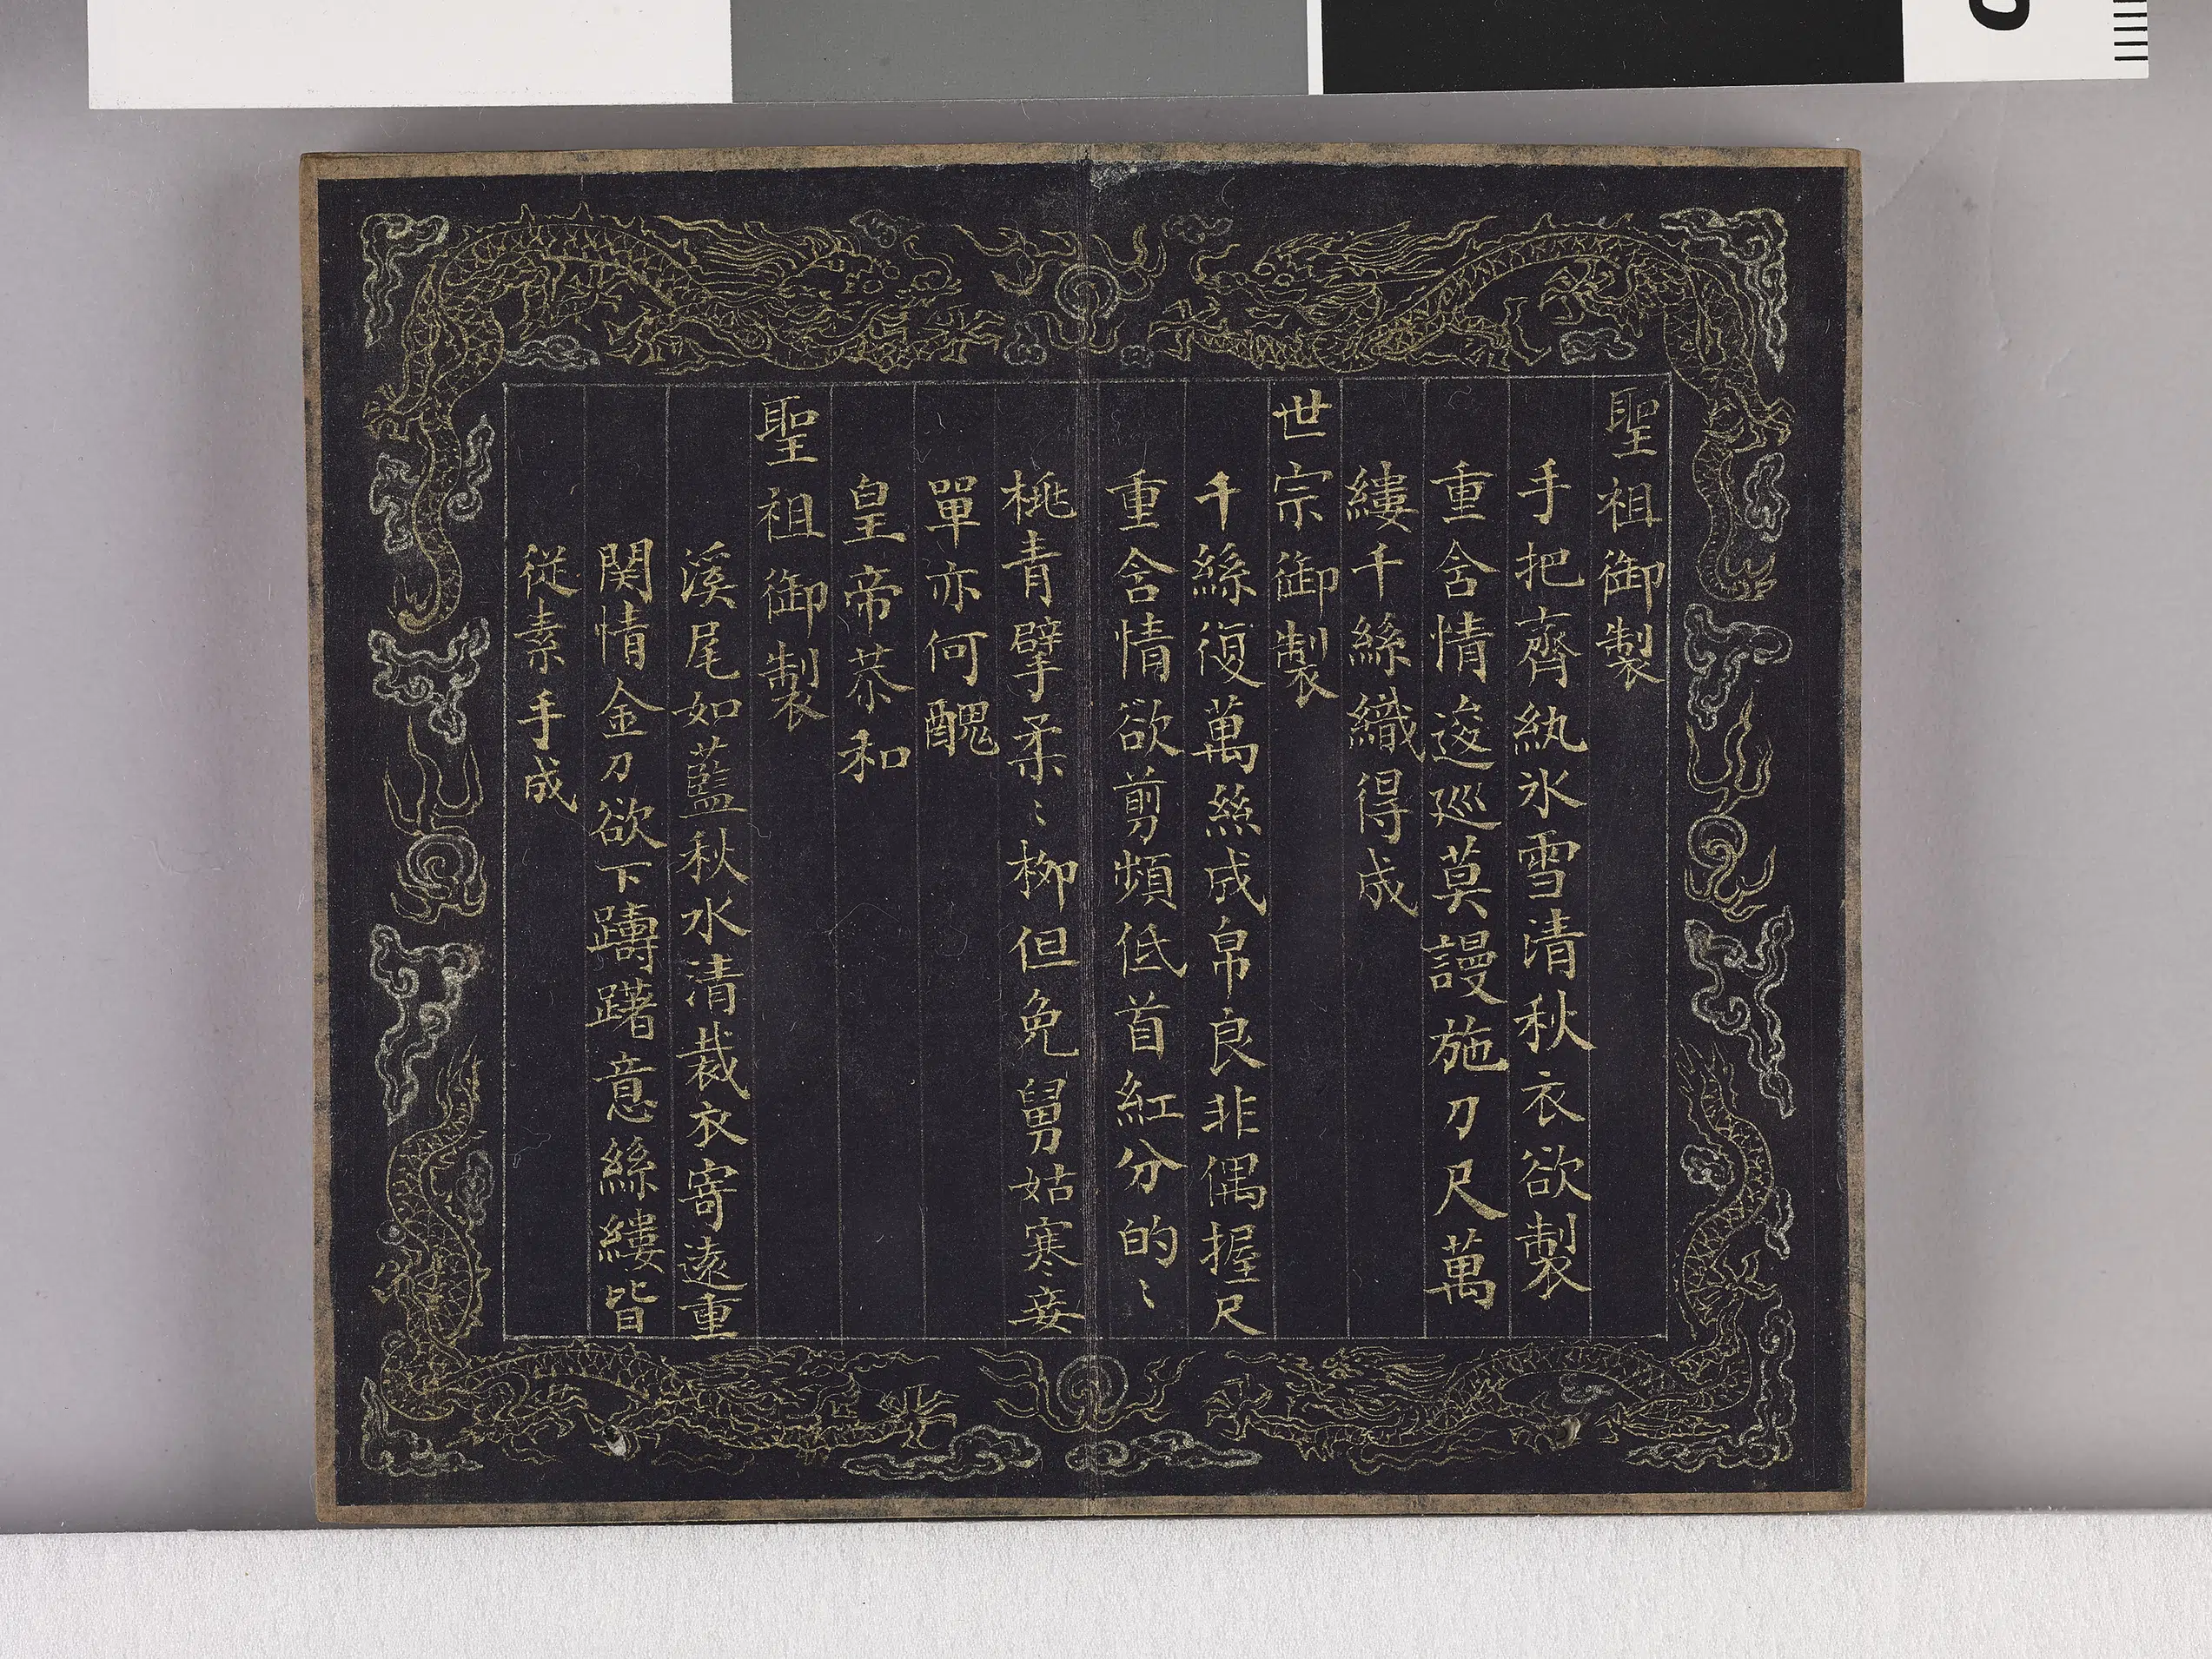 聖祖御製
手把齊紈氷雪清秋衣欲製
重含情逡廵莫謾施刀尺萬
縷千絲織得成
世宗御製
千絲復萬絲成帛良非偶握尺
重含情欲剪頻低首紅分的〻
桃青擘柔〻柳但免舅姑寒妾
單亦何醜
皇帝恭和
聖祖御製
溪尾如藍秋水清裁衣寄遠重
関情金刀欲下躊躇意絲縷皆
従素手成